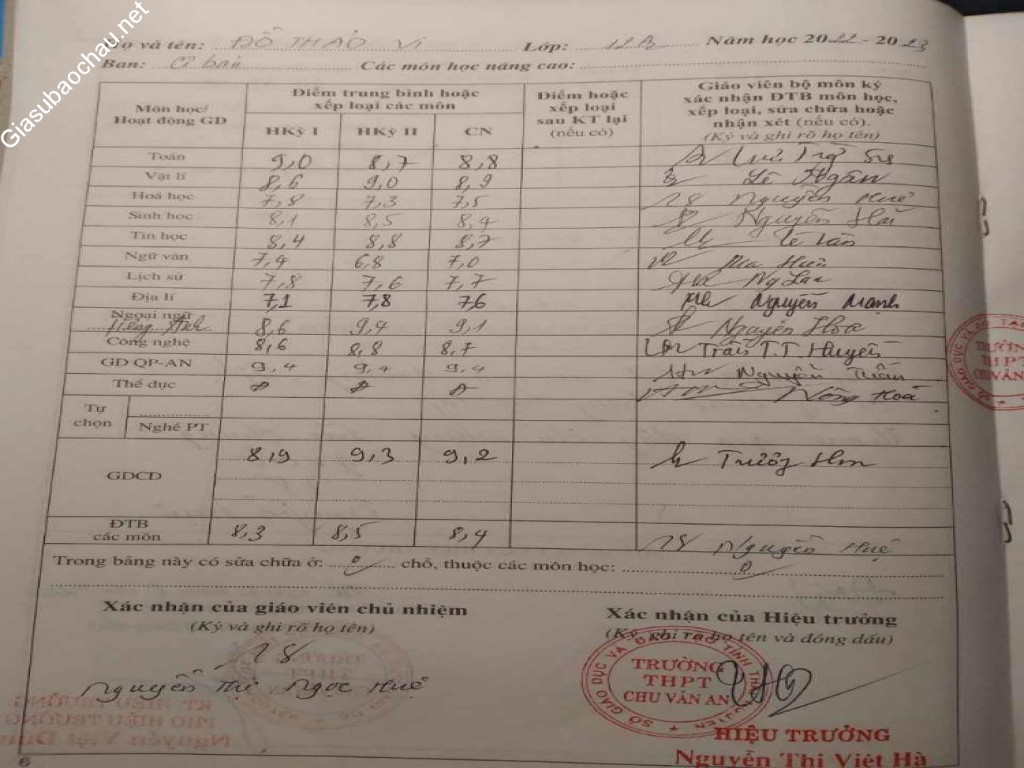 Giasubaochau.net
Họ và tên: ĐỖ THẢO VI Lớp: 12A Năm học 2022 - 2023
Ban: Cơ bản Các môn học nâng cao:
Môn học/ Hoạt động GD
Điểm trung bình hoặc xếp loại các môn
HKỳ I HKỳ II CN
Điểm hoặc xếp loại sau KT lại (nếu có)
Giáo viên bộ môn ký xác nhận ĐTB môn học, xếp loại, sửa chữa hoặc nhận xét (nếu có).
(Ký và ghi rõ họ tên)
Toán 9,0 8,7 8,8
Vật lí 8,6 9,0 8,9 Lê Ngân
Hoá học 7,8 7,3 7,5 Nguyễn Huệ
Sinh học 8,1 8,5 8,4 Nguyễn Hải
Tin học 8,4 8,8 8,7 Lê Vân
Ngữ văn 7,4 6,8 7,0
Lịch sử 7,8 7,6 7,7 Ng Lan
Địa lí 7,1 7,8 7,6 Nguyễn Mạnh
Ngoại ngữ
Tiếng Anh 8,6 9,4 9,1 Nguyễn Hoa
Công nghệ 8,6 8,8 8,7 Trần T.T Huyền
GD QP-AN 9,4 9,4 9,4 Nguyễn Tuấn
Thể dục Đ Đ Đ Nông Hoà
Tự chọn
Nghề PT
GDCD 8,9 9,3 9,2 Trương
ĐTB các môn 8,3 8,5 8,4 Nguyễn Huệ
Trong bảng này có sửa chữa ở: 0 chỗ, thuộc các môn học: 0
Xác nhận của giáo viên chủ nhiệm
(Ký và ghi rõ họ tên)
Nguyễn Thị Ngọc Huệ
Xác nhận của Hiệu trưởng
(Ký, ghi rõ họ tên và đóng dấu)
TRƯỜNG
THPT
CHU VĂN AN
HIỆU TRƯỞNG
Nguyễn Thị Việt Hà
TRƯỜNG
THPT
CHU VĂN AN
6